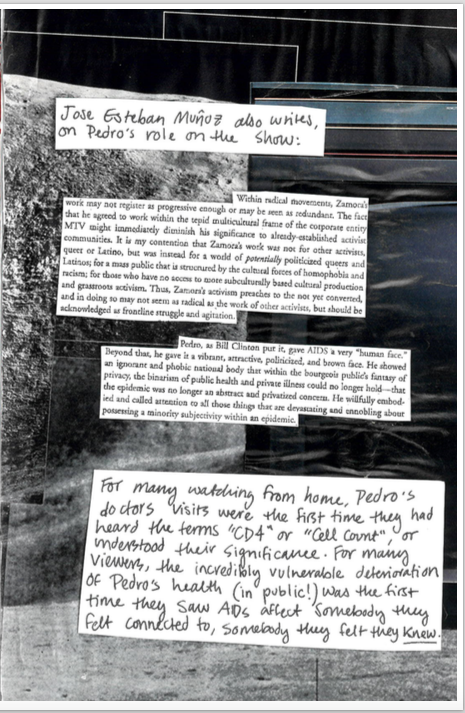 Jose Esteban Muñoz also writes,
on Pedro's role on the show:
Within radical movements, Zamora's
work may not register as progressive enough or may be seen as redundant. The fact
that he agreed to work within the tepid multicultural frame of the corporate entity
MTV might immediately diminish his significance to already-established activist
communities. It is my contention that Zamora's work was not for other activists,
queer or Latino, but was instead for a world of potentially politicized queers and
Latinos; for a mass public that is structured by the cultural forces of homophobia and
racism; for those who have no access to more subculturally based cultural production
and grassroots activism. Thus, Zamora's activism preaches to the not yet converted,
and in doing so may not seem as radical as the work of other activists, but should be
acknowledged as frontline struggle and agitation.
Pedro, as Bill Clinton put it, gave AIDS a very "human face."
Beyond that, he gave it a vibrant, attractive, politicized, and brown face. He showed
an ignorant and phobic national body that within the bourgeois public's fantasy of
privacy, the binarism of public health and private illness could no longer hold—that
the epidemic was no longer an abstract and privatized concern. He willfully embod-
ied and called attention to all those things that are devastating and ennobling about
possessing a minority subjectivity within an epidemic.
For many watching from home, Pedro's
doctors visits were the first time they had
heard the terms "CD4" or "Cell Count", or
understood their significance. For many
viewers, the incredibly vulnerable deterioration
of Pedro's health (in public!) was the first
time they saw AIDs affect somebody they
felt connected to, somebody they felt they knew.